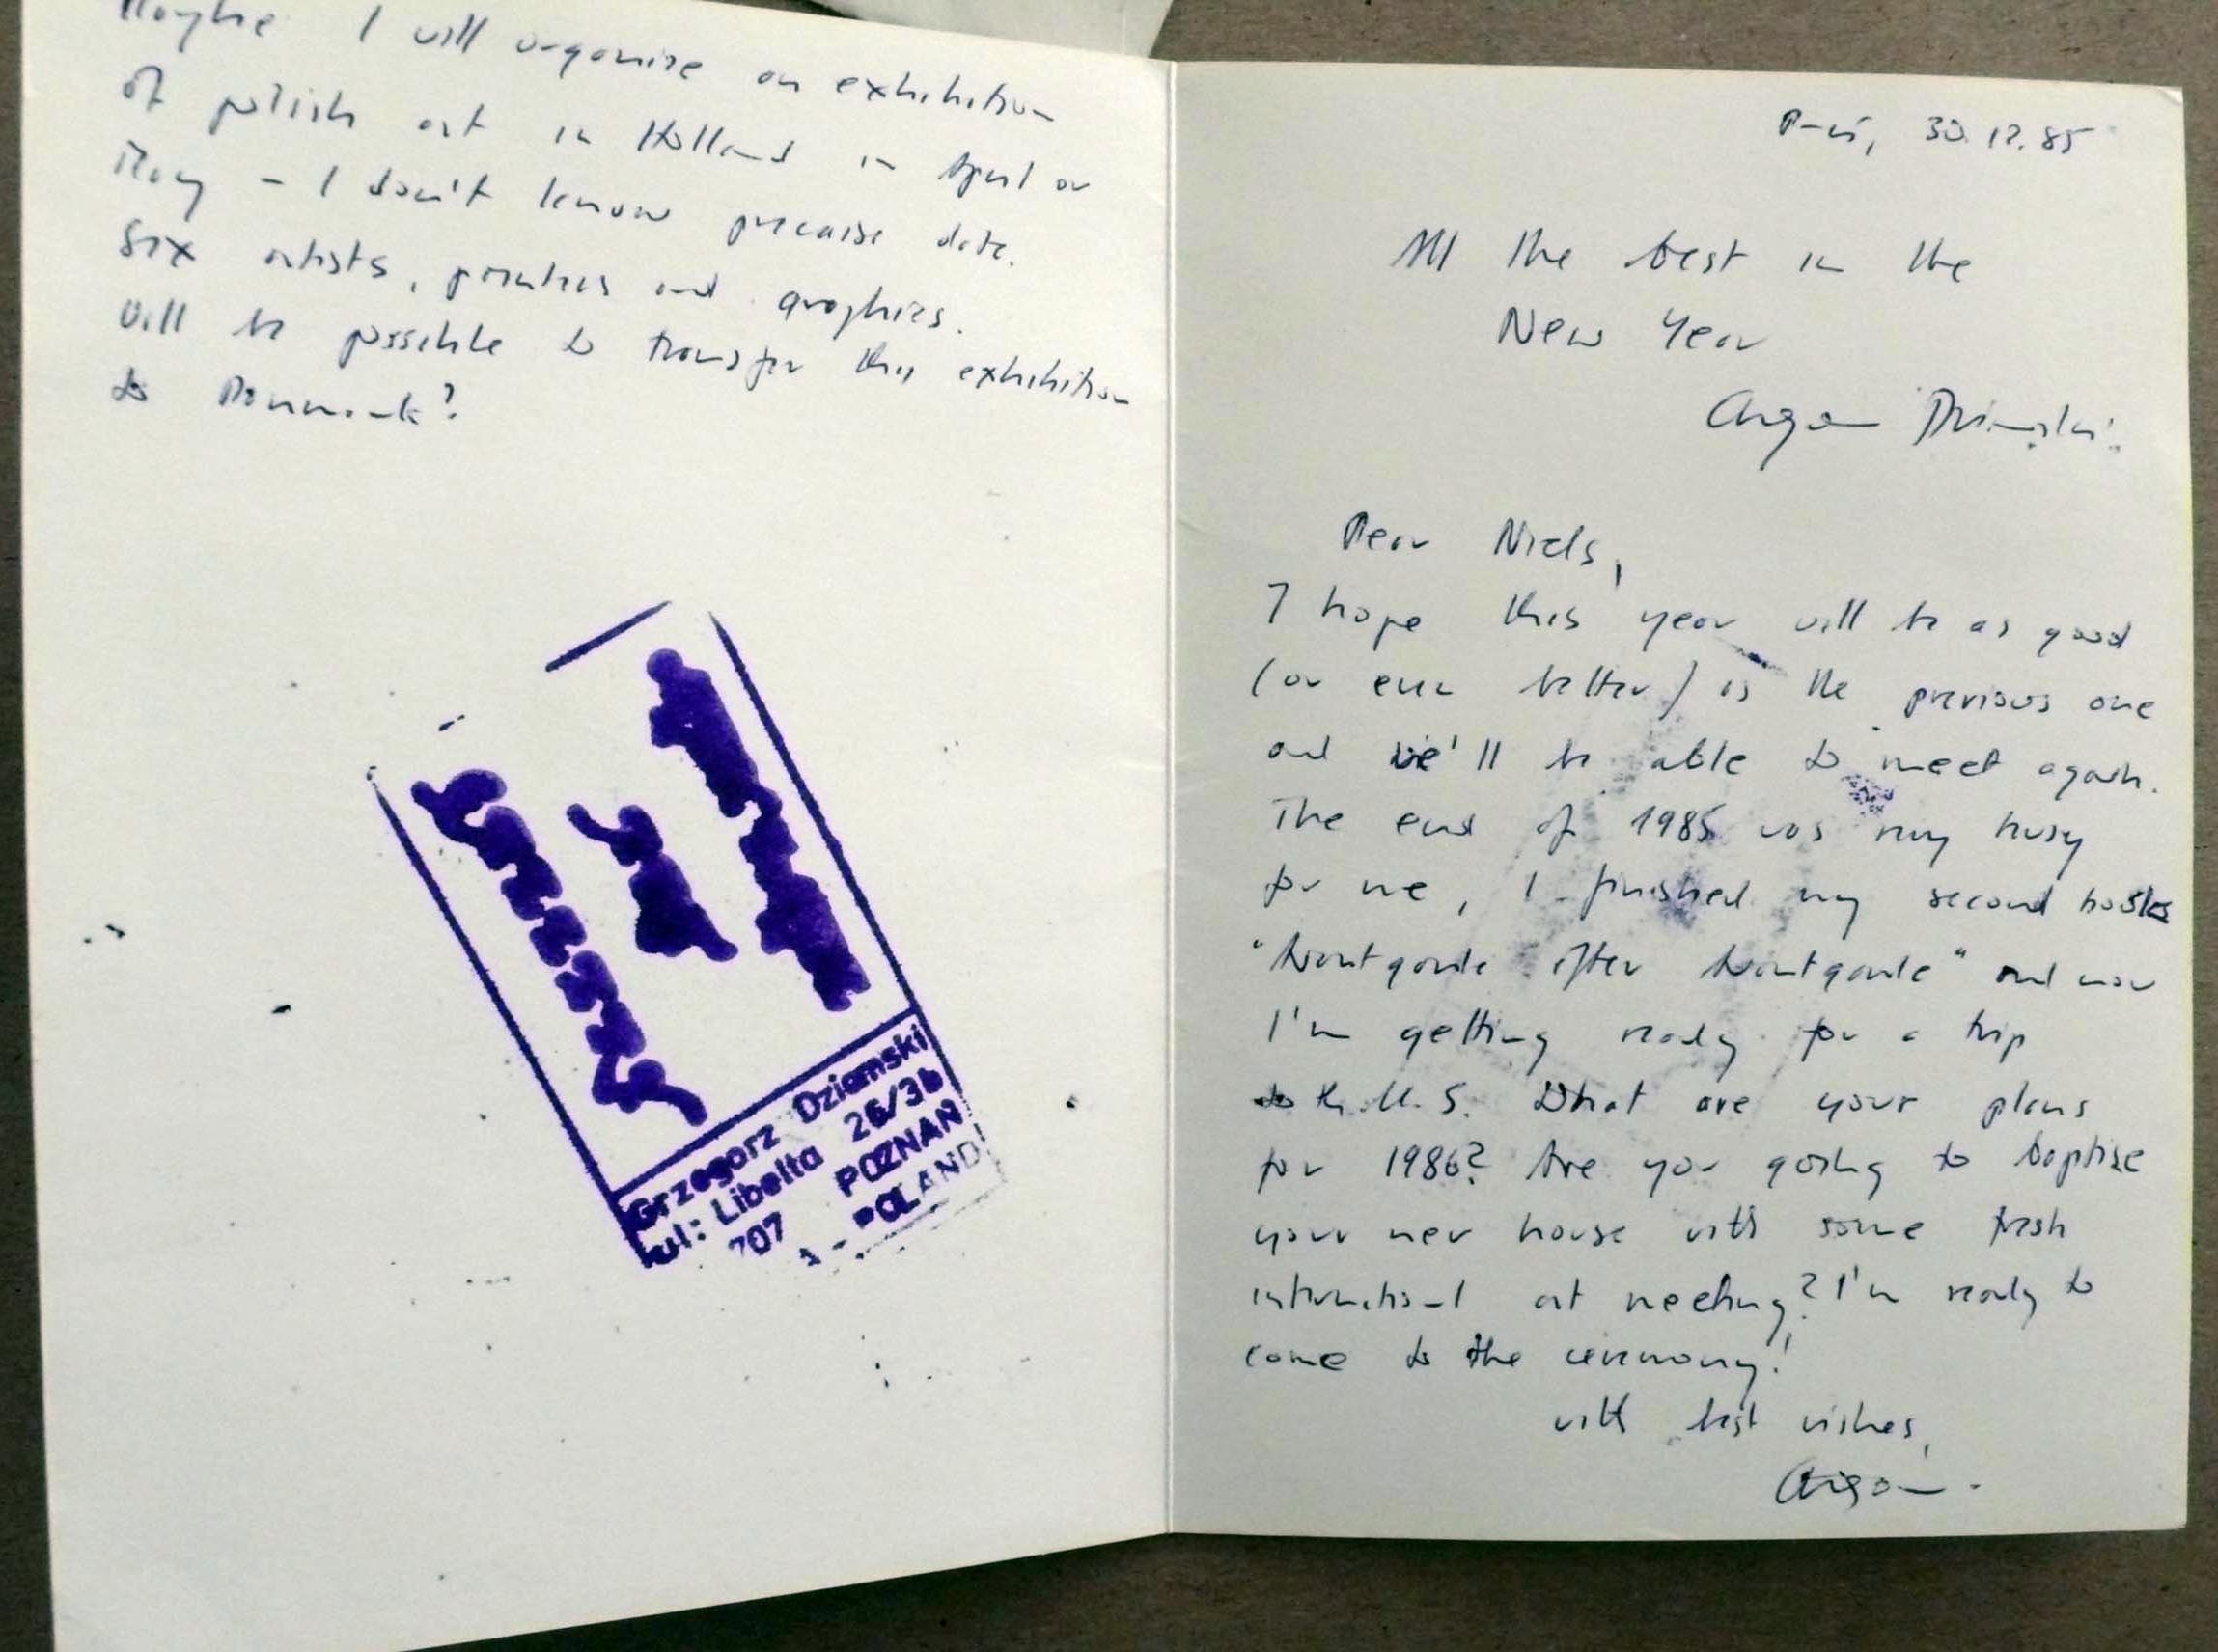 Maybe I will organize an exhibition
of polish art in Holland in April or
May - I don't know precaise date.
Six artists, painters and graphics.
Will be possible to transfer this exhibition
to Denmark?
Grzegorz Dziamski
ul: Libelta 26/3b
707 POZNAŃ
POLAND
P-ń, 30.12.85
All the best in the
New Year
Dziamski
Dear Niels,
I hope this year will be as good
(or even better) as the previous one
and we'll be able to meet again.
The end of 1985 was very busy
for me, I finished my second books
"Avantgarde after Avantgarde" and now
I'm getting ready for a trip
to the U.S. What are your plans
for 1986? Are you going to baptise
your new house with some fresh
international art meeting? I'm ready to
come to the ceremony!
with best wishes,